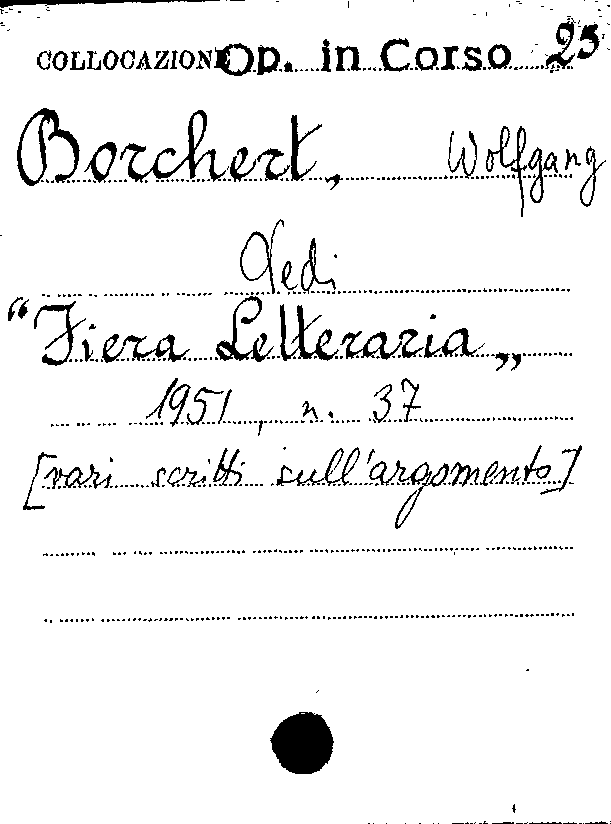 COLLOCAZIONE Op. in Corso 25
Borchert, Wolfgang
Vedi
“Fiera Letteraria„
1951, n. 37
[vari scritti sull'argomento]